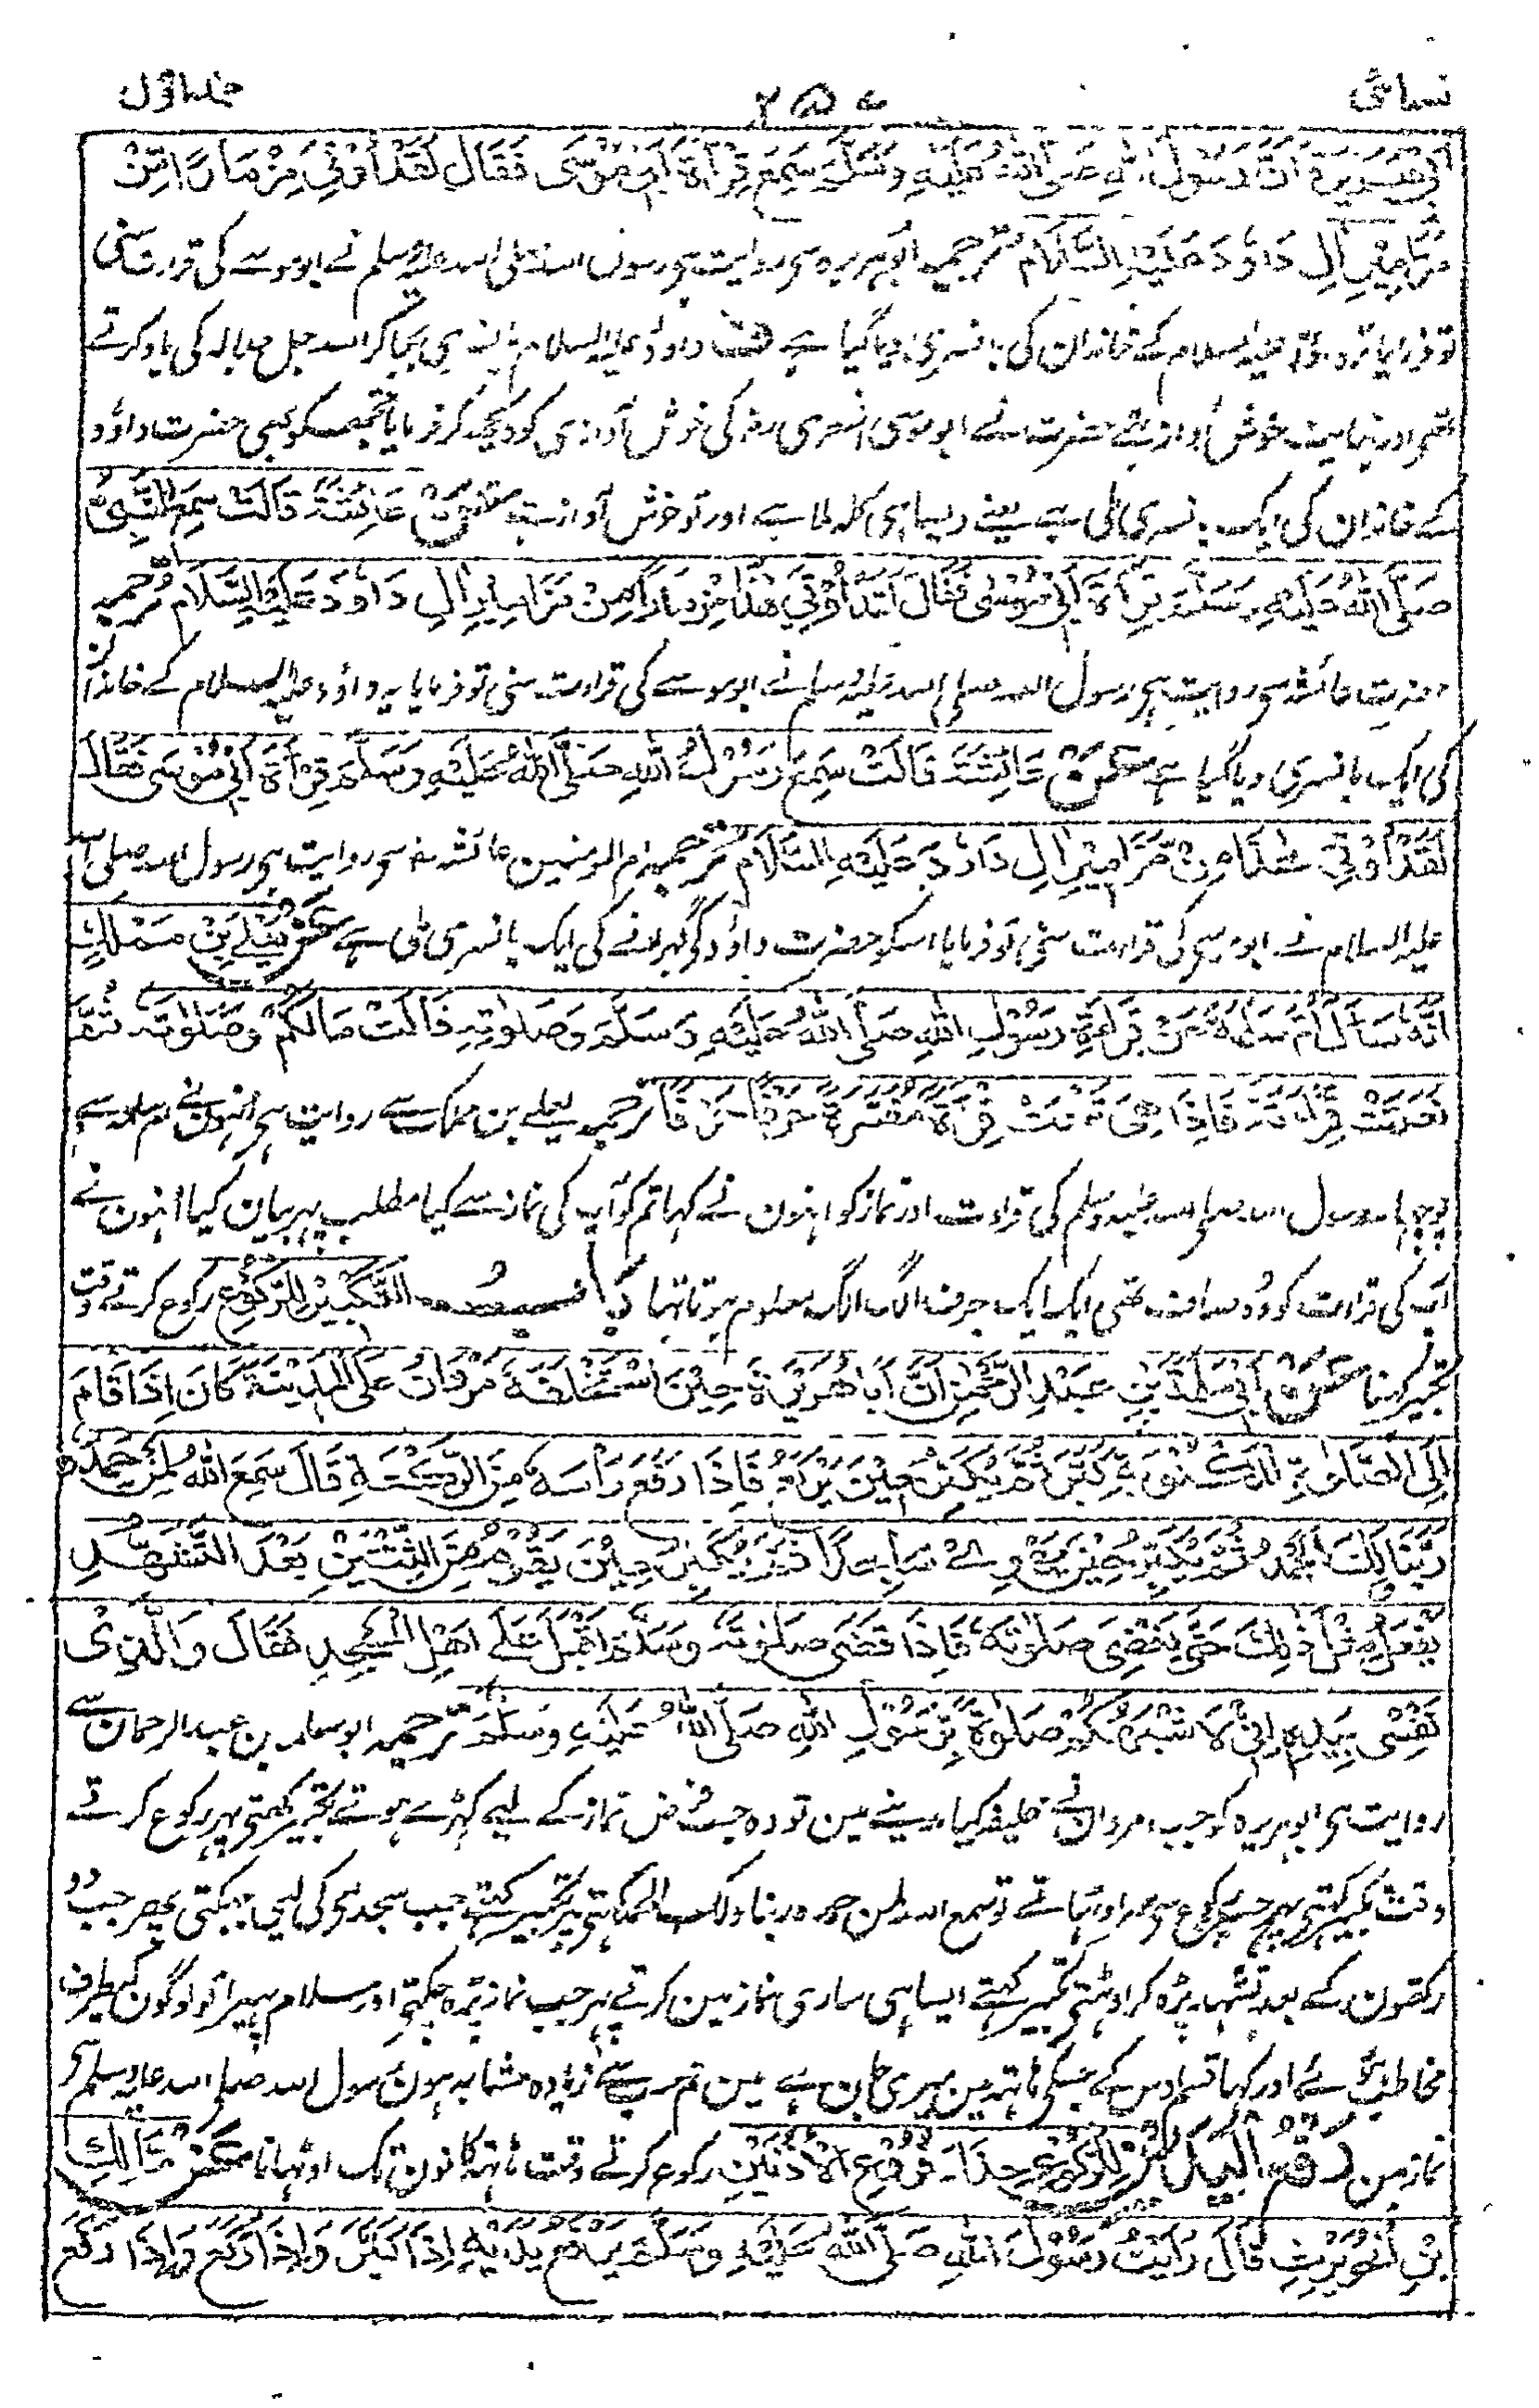 نسائی ۲۵۷ جلد اوّل
اَبِیْ هُرَیْرَةَ اَنَّ رَسُوْلَ اللّٰهِ صَلَّی اللّٰهُ عَلَیْهِ وَسَلَّمَ سَمِعَ قِرْاَةَ اَبِیْ مُوْسٰی فَقَالَ لَقَدْ اُوْتِیَ مِزْمَارًا مِّنْ
مَزَامِیْرِ اٰلِ دَاوٗدَ عَلَیْهِ السَّلَامُ ترجمہ ابوہریرہ سے روایت ہی رسول اللہ صلی اللہ علیہ وسلم نے ابو موسے کی قراءت سنی
تو فرمایا تو داؤد علیہ السلام کے خاندان کی بانسری دیا گیا ہے ف داؤد علیہ السلام بانسری بجا کر اللہ جل جلالہ کی یاد کرتے
تھے اور نہایت خوش آواز تھے حضرت نے ابو موسی اشعری رض کی خوش آوازی کو دیکھ کر فرمایا تجھکو بھی حضرت داؤد
کے خاندان کی ایک بانسری ملی ہے یعنے ویسا ہی گلہ ملا ہے اور تو خوش آواز ہے عَنْ عَائِشَةَ قَالَتْ سَمِعَ النَّبِیُّ
صَلَّی اللّٰهُ عَلَیْهِ وَسَلَّمَ قِرَاَةَ اَبِیْ مُوْسٰی فَقَالَ لَقَدْ اُوْتِیَ هٰذَا مِزْمَارًا مِّنْ مَزَامِیْرِ اٰلِ دَاوٗدَ عَلَیْهِ السَّلَامُ ترجمہ
حضرت عائشہ سے روایت ہی رسول اللہ صلی اللہ علیہ وسلم نے ابو موسے کی قراءت سنی تو فرمایا یہ داؤد علیہ السلام کے خاندان
کی ایک بانسری دیا گیا ہے عَنْ عَائِشَةَ قَالَتْ سَمِعَ رَسُوْلُ اللّٰهِ صَلَّی اللّٰهُ عَلَیْهِ وَسَلَّمَ قِرَاَةَ اَبِیْ مُوْسٰی فَقَالَ
لَقَدْ اُوْتِیَ هٰذَا مِنْ مَّزَامِیْرِ اٰلِ دَاوٗدَ عَلَیْهِ السَّلَامُ ترجمہ ام المومنین عائشہ رض سے روایت ہی رسول اللہ صلی اللہ
علیہ السلام نے ابو موسی کی قراءت سنی تو فرمایا اسکو حضرت داؤد کو گہرانے کی ایک بانسری ملی ہے عَنْ یَعْلَی بْنِ مَمْلَكٍ
اَنَّهٗ سَاَلَ اُمَّ سَلَمَةَ عَنْ قِرَاءَةِ رَسُوْلِ اللّٰهِ صَلَّی اللّٰهُ عَلَیْهِ وَسَلَّمَ وَصَلٰوتِهٖ قَالَتْ مَالَكُمْ وَصَلٰوتَهٗ ثُمَّ
نَعَتَتْ قِرَاءَتَهٗ فَاِذَا هِیَ تَنْعَتُ قِرَاءَةً مُفَسَّرَةً حَرْفًا حَرْفًا ترجمہ یعلے بن مملک سے روایت ہی انہوں نے ام سلمہ سے
پوچہا رسول اللہ صلی اللہ علیہ وسلم کی قراءت اور نماز کو انہوں نے کہا تم کو آپ کی نماز سے کیا مطلب پہر بیان کیا انہون نے
آپ کی قراءت کو وہ صاف تھی ایک ایک حرف الگ الگ معلوم ہوتا تہا بَابُ التَّكْبِیْرِ لِلرُّكُوْعِ رکوع کرتے وقت
تکبیر کہنا عَنْ اَبِیْ سَلَمَةَ بْنِ عَبْدِ الرَّحْمٰنِ اَنَّ اَبَا هُرَیْرَةَ حِیْنَ اسْتَخْلَفَهٗ مَرْوَانُ عَلَی الْمَدِیْنَةِ كَانَ اِذَا قَامَ
اِلَی الصَّلٰوةِ الْمَكْتُوْبَةِ كَبَّرَ ثُمَّ یُكَبِّرُ حِیْنَ یَرْكَعُ فَاِذَا رَفَعَ رَاْسَهٗ مِنَ الرَّكْعَةِ قَالَ سَمِعَ اللّٰهُ لِمَنْ حَمِدَهٗ
رَبَّنَا لَكَ الْحَمْدُ ثُمَّ یُكَبِّرُ حِیْنَ یَهْوِیْ سَاجِدًا ثُمَّ یُكَبِّرُ حِیْنَ یَقُوْمُ مِنَ الثِّنْتَیْنِ بَعْدَ التَّشَهُّدِ
یَفْعَلُ مِثْلَ ذٰلِكَ حَتّٰی یَقْضِیَ صَلٰوتَهٗ فَاِذَا قَضٰی صَلٰوتَهٗ وَسَلَّمَ اَقْبَلَ عَلٰے اَهْلِ الْمَسْجِدِ فَقَالَ وَالَّذِیْ
نَفْسِیْ بِیَدِهٖ اِنِّیْ لَاَشْبَهُكُمْ صَلٰوةً بِرَسُوْلِ اللّٰهِ صَلَّی اللّٰهُ عَلَیْهِ وَسَلَّمَ ترجمہ ابو سلمہ بن عبد الرحمان سے
روایت ہی ابو ہریرہ کو جب مروان نے خلیفہ کیا مدینے مین تو وہ جب فرض نماز کے لیے کہڑے ہوتے تکبیر کہتی پہر رکوع کرتے
وقت تکبیر کہتی پہر جب رکوع سے سر اوٹہاتے تو سمع اللہ لمن حمدہ ربنا ولک الحمد کہتی پہر تکبیر کہتے جب سجدی کی لیی جہکتی پھر جب دو
رکعتون کے بعد تشہد پڑہ کر اوٹہتی تکبیر کہتے ایسا ہی ساری نماز مین کرتے پہر جب نماز پڑہ چکتی اور سلام پہیرا تو لوگون کیطرف
مخاطب ہوئے اور کہا قسم اوس کے جسکی ہاتہ مین میری جان ہے مین تم سب سے زیادہ مشابہ ہون رسول اللہ صلی اللہ علیہ وسلم کی
نماز مین رَفْعُ الْیَدَیْنِ لِلرُّكُوْعِ حِذَاءَ فُرُوْعِ الْاُذُنَیْنِ رکوع کرتے وقت ہاتہ کانون تک اوٹہانا عَنْ مَالِكِ
بْنِ الْحُوَیْرِثِ قَالَ رَاَیْتُ رَسُوْلَ اللّٰهِ صَلَّی اللّٰهُ عَلَیْهِ وَسَلَّمَ یَرْفَعُ یَدَیْهِ اِذَا كَبَّرَ وَاِذَا رَكَعَ وَاِذَا رَفَعَ